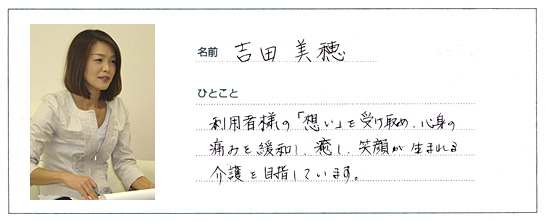 名前 吉田 美穂
ひとこと
利用者様の「想い」を受け取め、心身の
痛みを緩和し、癒し、笑顔が生まれる
介護を目指しています。